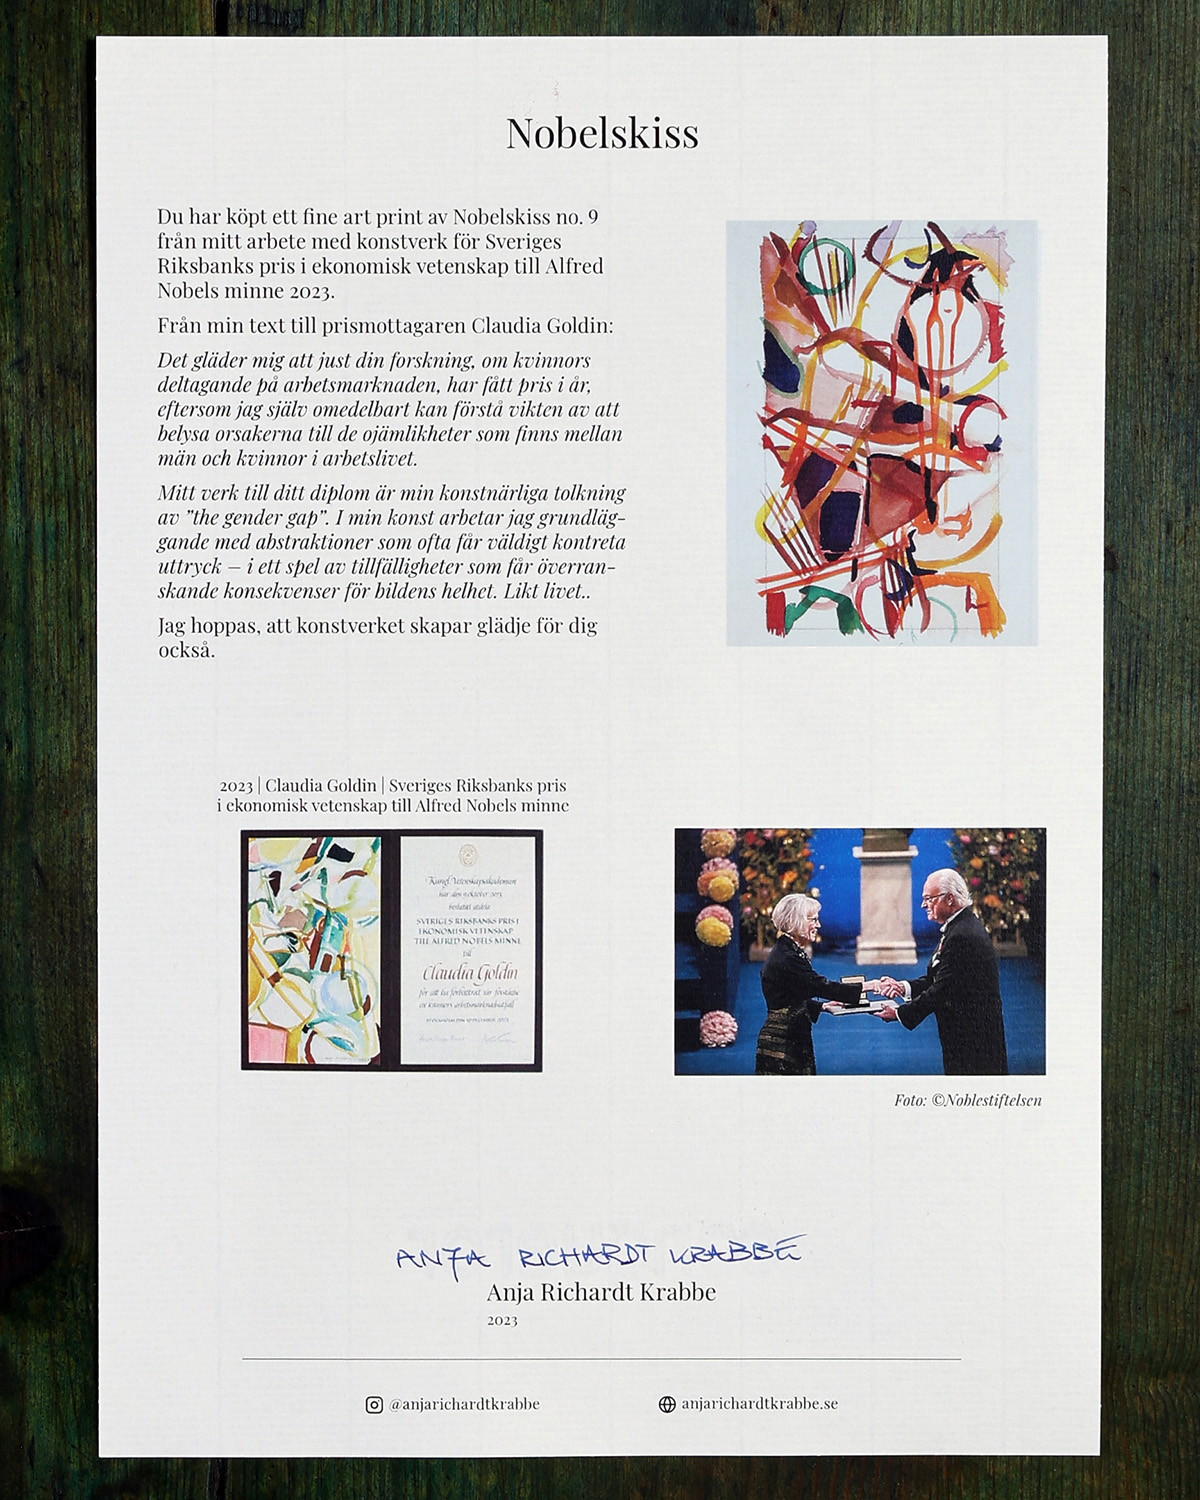 Nobelskiss
Du har köpt ett fine art print av Nobelskiss no. 9
från mitt arbete med konstverk för Sveriges
Riksbanks pris i ekonomisk vetenskap till Alfred
Nobels minne 2023.
Från min text till prismottagaren Claudia Goldin:
Det gläder mig att just din forskning, om kvinnors
deltagande på arbetsmarknaden, har fått pris i år,
eftersom jag själv omedelbart kan förstå vikten av att
belysa orsakerna till de ojämlikheter som finns mellan
män och kvinnor i arbetslivet.
Mitt verk till ditt diplom är min konstnärliga tolkning
av ”the gender gap”. I min konst arbetar jag grundläg-
gande med abstraktioner som ofta får väldigt kontreta
uttryck – i ett spel av tillfälligheter som får överran-
skande konsekvenser för bildens helhet. Likt livet..
Jag hoppas, att konstverket skapar glädje för dig
också.
2023 | Claudia Goldin | Sveriges Riksbanks pris
i ekonomisk vetenskap till Alfred Nobels minne
Kungl. Vetenskapsakademien
har den 9 oktober 2023
beslutat utdela
SVERIGES RIKSBANKS PRIS I
EKONOMISK VETENSKAP
TILL ALFRED NOBELS MINNE
till
Claudia Goldin
för att ha förbättrat vår förståelse
av kvinnors arbetsmarknadsutfall
STOCKHOLM DEN 10 DECEMBER 2023
Foto: ©Noblestiftelsen
ANJA RICHARDT KRABBE
Anja Richardt Krabbe
2023
@anjarichardtkrabbe
anjarichardtkrabbe.se